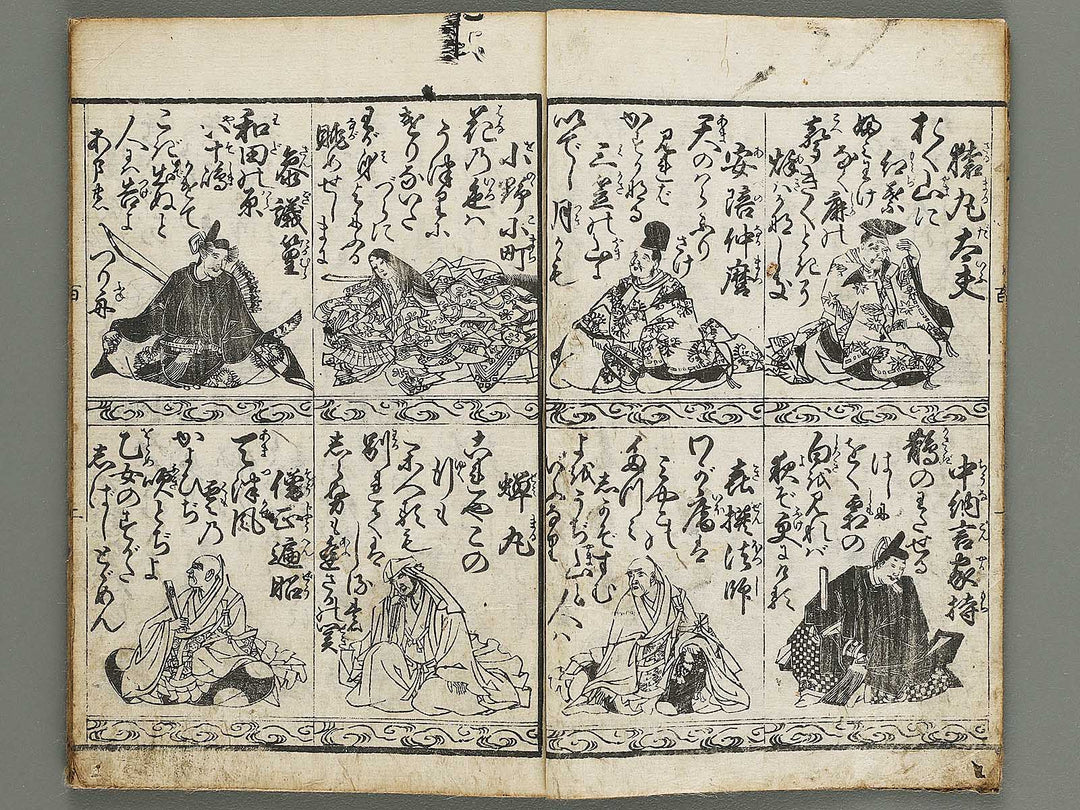 猿丸太夫
おく山に
紅葉
ふみわけ
なく鹿の
聲きくときぞ
秋はかなしき
中納言家持
鵲のわたせる
はしに
をく霜の
白きを見れバ
夜ぞ更にける
安陪仲麿
天のはらふり
さけ
見れば
かすかなる
三笠の山に
いでし月かも
喜撰法師
わが庵は
みやこの
たつみ
しかぞすむ
よをうぢ山と
人ハ
いふなり
小野小町
花の色ハ
うつりに
けりないた
づらに
わが身よにふる
眺めせしまに
蝉丸
これやこの
行も
かへるも
別れてハ
しるも
しらぬも逢さかの関
参議篁
和田の原
八十嶋
かけて
こぎ出ぬと
人にハ告よ
あまの
つり舟
僧正遍昭
天津風
雲の
かよひぢ
吹とぢよ
乙女のすがた
しばしとゞめん